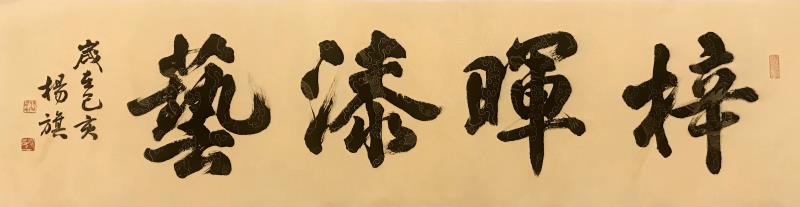 梓暉漆藝
歲在己亥
楊旗